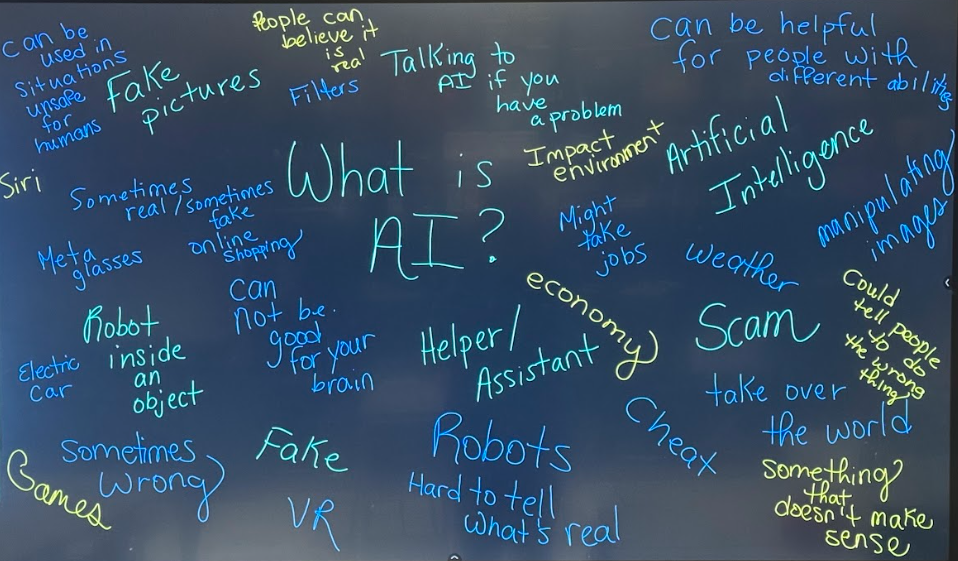 can be
used in
situations
unsafe
for
humans
Fake
pictures
People can
believe it
is
real
Filters
Talking to
AI if you
have
a problem
can be helpful
for people with
different abilities
Siri
Sometimes
real/sometimes
fake
online
shopping
What is
AI?
Impact
environment
Artificial
Intelligence
manipulating
images
Meta
glasses
Might
take
jobs
weather
Can
not be
good
for your
brain
economy
Could
tell people
to do
the wrong
thing
Robot
inside
an
object
Electric
Car
Helper/
Assistant
Scam
take over
the world
Cheax
Sometimes
wrong
Games
Fake
VR
Robots
Hard to tell
what's real
something
that
doesn't make
sense